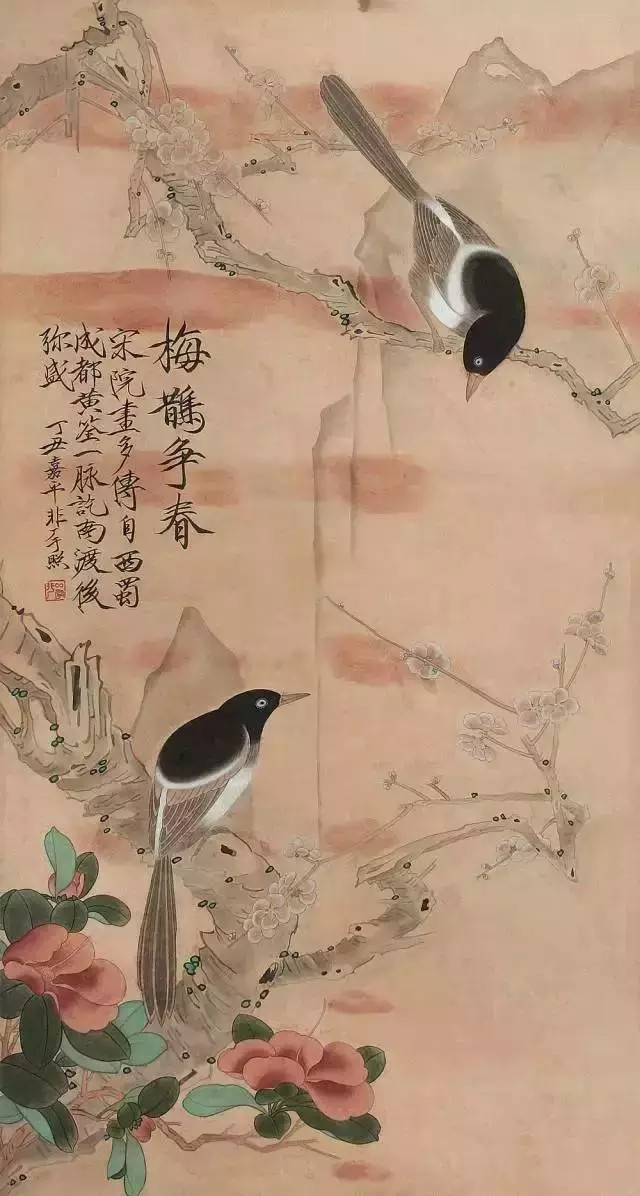 梅鵲争春
宋院畫多傳自西蜀
成都黄筌一脉訖南渡後
弥盛
丁丑嘉平非厂于照